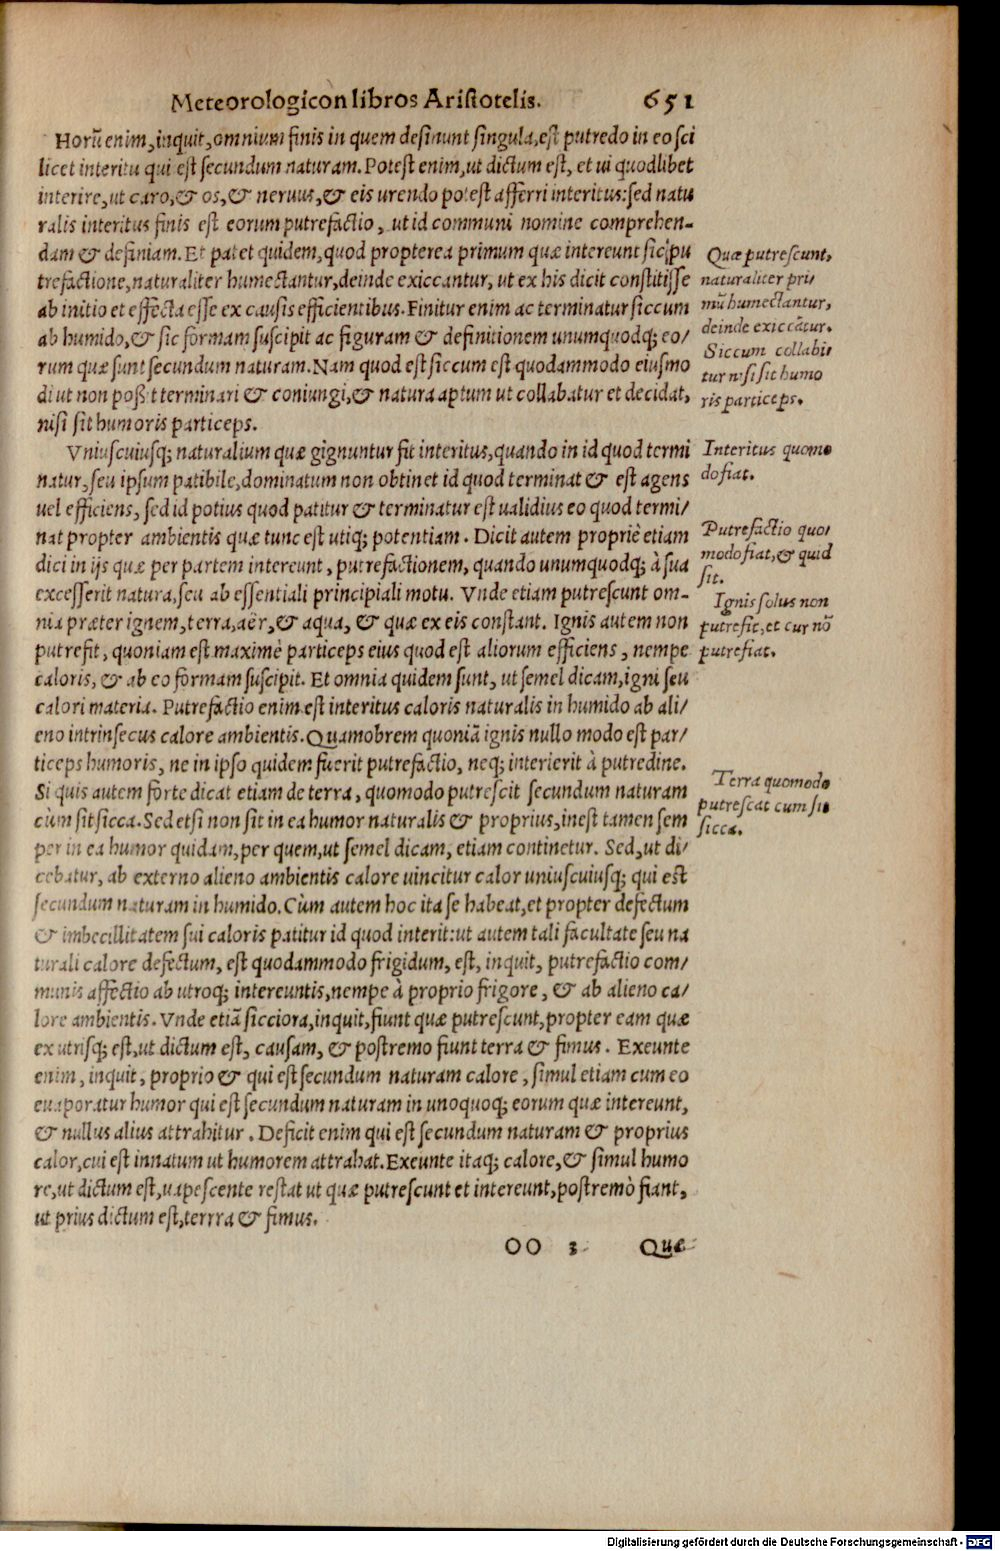 Meteorologicon libros Aristotelis. 651
Horū enim, inquit, omnium finis in quem desinunt singula, est putredo in eo sci
licet interitu qui est secundum naturam. Potest enim, ut dictum est, et ui quodlibet
interire, ut caro, & os, & neruus, & eis urendo potest afferri interitus: sed natu
ralis interitus finis est eorum putrefactio, ut id communi nomine comprehen-
dam & definiam. Et patet quidem, quod propterea primum quæ intereunt sic pu
trefactione, naturaliter humectantur, deinde exiccantur, ut ex his dicit constitisse
ab initio et effecta esse ex causis efficientibus. Finitur enim ac terminatur siccum
ab humido, & sic formam suscipit ac figuram & definitionem unumquodq; eo/
rum quæ sunt secundum naturam. Nam quod est siccum est quodammodo eiusmo
di ut non poßit terminari & coniungi, & natura aptum ut collabatur et decidat,
nisi sit humoris particeps.
Vniuscuiusq; naturalium quæ gignuntur fit interitus, quando in id quod termi
natur, seu ipsum patibile, dominatum non obtinet id quod terminat & est agens
uel efficiens, sed id potius quod patitur & terminatur est ualidius eo quod termi/
nat propter ambientis quæ tunc est utiq; potentiam. Dicit autem propriè etiam
dici in ijs quæ per partem intereunt, putrefactionem, quando unumquodq; à sua
excesserit natura, seu ab essentiali principiali motu. Vnde etiam putrescunt om-
nia præter ignem, terra, aër, & aqua, & quæ ex eis constant. Ignis autem non
putrefit, quoniam est maximè particeps eius quod est aliorum efficiens, nempe
caloris, & ab eo formam suscipit. Et omnia quidem sunt, ut semel dicam, igni seu
calori materia. Putrefactio enim est interitus caloris naturalis in humido ab ali/
eno intrinsecus calore ambientis. Quamobrem quoniā ignis nullo modo est par/
ticeps humoris, ne in ipso quidem fuerit putrefactio, neq; interierit à putredine.
Si quis autem forte dicat etiam de terra, quomodo putrescit secundum naturam
cùm sit sicca. Sed etsi non sit in ea humor naturalis & proprius, inest tamen sem
per in ea humor quidam, per quem, ut semel dicam, etiam continetur. Sed, ut di/
cebatur, ab externo alieno ambientis calore uincitur calor uniuscuiusq; qui est
secundum naturam in humido. Cùm autem hoc ita se habeat, et propter defectum
& imbecillitatem sui caloris patitur id quod interit: ut autem tali facultate seu na
turali calore defectum, est quodammodo frigidum, est, inquit, putrefactio com/
munis affectio ab utroq; intereuntis, nempe à proprio frigore, & ab alieno ca/
lore ambientis. Vnde etiā sicciora, inquit, fiunt quæ putrescunt, propter eam quæ
ex utrisq; est, ut dictum est, causam, & postremo fiunt terra & fimus. Exeunte
enim, inquit, proprio & qui est secundum naturam calore, simul etiam cum eo
euaporatur humor qui est secundum naturam in unoquoq; eorum quæ intereunt,
& nullus alius attrahitur. Deficit enim qui est secundum naturam & proprius
calor, cui est innatum ut humorem attrahat. Exeunte itaq; calore, & simul humo
re, ut dictum est, uapescente restat ut quæ putrescunt et intereunt, postremò fiant,
ut prius dictum est, terrra & fimus.
OO 3 Quæ
Quæ putrescunt,
naturaliter pri/
mū humectantur,
deinde exiccātur.
Siccum collabi/
tur nisi sit humo
ris particeps.
Interitus quomo
do fiat.
Putrefactio quo/
modo fiat, & quid
sit.
Ignis solus non
putrefit, et cur nō
putrefiat.
Terra quomodo
putrescat cum sit
sicca.
Digitalisierung gefördert durch die Deutsche Forschungsgemeinschaft - DFG